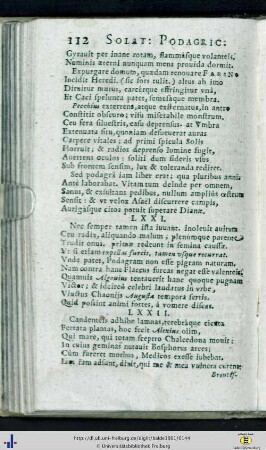 112 SOLAT: PODAGRIC:
Gyrauit per inane rotam, flammasque volantels,
Numinis æterni nunquam mens prouida dormit.
Expurgare domum, quadam renouare
Incidit Heredi. (sic fors tulit.) altus ab imo
Diruitur murus, carcérque effringitur vnà,
Et Caci spelunca patet, semésaque membra.
exterrens, atque exsternatus, in antro
Constitit obscuro: visu miserabile monstrum,
Ceu fera siluestris, cæsis depressis. at Vmbra
Extenuata situ, quoniam desueuerat auras
Carpere vitales: ad primi spicula Solis
Horruit: & radios deprenso lumine fugit,
Auertens oculos: soliti dum sideris vius
Sub frontem sensim, lux & toleranda rediret.
Sed podagrâ iam liber erat: qua pluribus annis
Ante laborabat. Vitam tum deinde per omnem,
Sanus, & exsultans pedibus, nullum ampliùs œstrum
Sensit: & vt velox Asael discurrere campis,
Aurigásque citos potuit superare Dianæ.
LXXI.
Nec semper tamen ista iuuant. Inoleuit
Ceu radix, aliquando malum; plenumque parente
Trudit onus. primæ redeunt in semina caussæ.
Et si etiam expellas furcis, tamen vsque recurrat.
Vnde patet, Podagram non esse pigram naturam.
Nam contra hanc Flaccus furcas negat esse valenteis,
Quamuis Algruius tentauerit hanc quoque pugnam
Victor; & idcircò celebri laudatus in vrbe,
Vinctus Chaoniis Augusta tempora sertis.
Quid possint animi fortes, â vomere discas.
LXXII.
Candenteis adhibe lamnas, terebrásque
Ferrata plantas, hoc fecit Alexius olim,
Qui mare, qui totam sceptro Chalcedona mouit:
In cuius geminas nutauit Bosphorus arces;
Cùm fureret morbus, Medicos exesse iubebat.
Iam fam adsunt, dixit, qui me & mea vulnera curent
http://dl.ub.uni-freiburg.de/diglit/balde1661/0144
© Universitätsbibliothek Freiburg